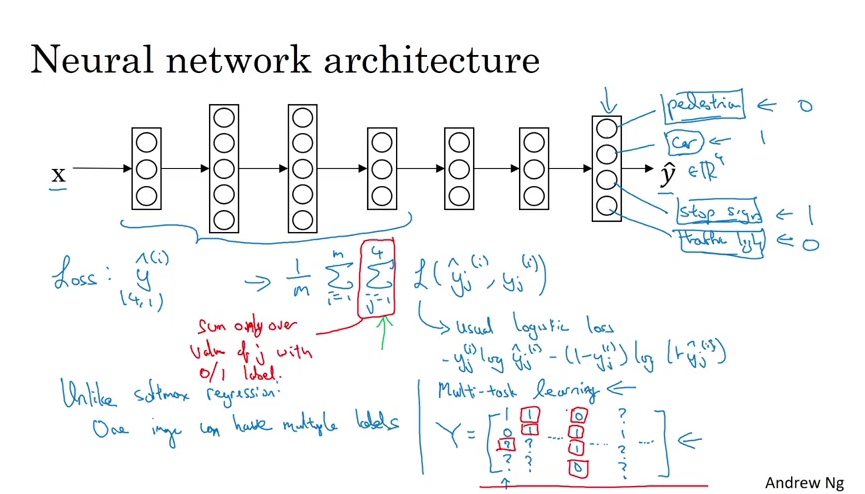 Neural network architecture
pedestrian ← 0
car ← 1
x
ŷ ∈ ℝ⁴
stop sign ← 1
traffic light ← 0
Loss: ŷ^(i) → 1/m Σ_{i=1}^{m} Σ_{j=1}^{4} L(ŷ_j^(i), y_j^(i))
(4,1)
Sum only over
value of j with
0/1 label.
usual logistic loss
- y_j^(i) log ŷ_j^(i) - (1-y_j^(i)) log (1-ŷ_j^(i))
Unlike softmax regression:
One image can have multiple labels
Multi-task learning ←
Y = [ 1 1 0 ?
0 1 ... 1 1 ...
? ? 1 ?
? ? 0 ? ] ←
Andrew Ng